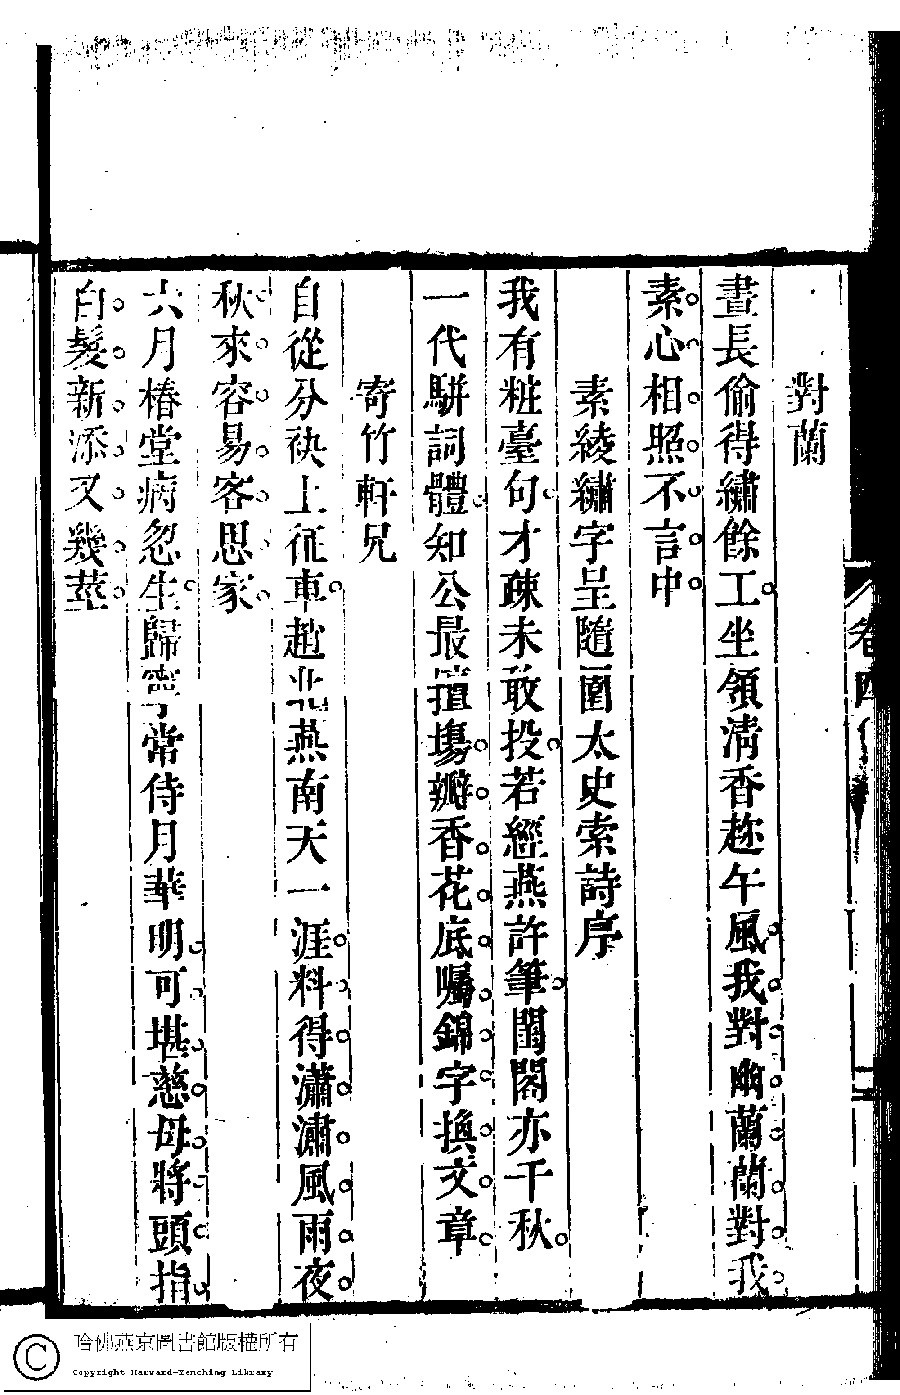 對蘭
晝長偷得繡餘工坐領清香趂午風我對幽蘭蘭對我
素心相照不言中
素綾繡字呈隨園太史索詩序
我有粧臺句才疎未敢投若經燕許筆閨閣亦千秋
一代駢詞體知公最擅塲瓣香花底囑錦字換文章
寄竹軒兄
自從分袂上征車趙北燕南天一涯料得瀟瀟風雨夜
秋來容易客思家
六月椿堂病忽生歸寧常侍月華明可堪慈母將頭指
白髮新添又幾莖
卷四
哈佛燕京圖書館版權所有
Copyright Harvard-Yenching Library